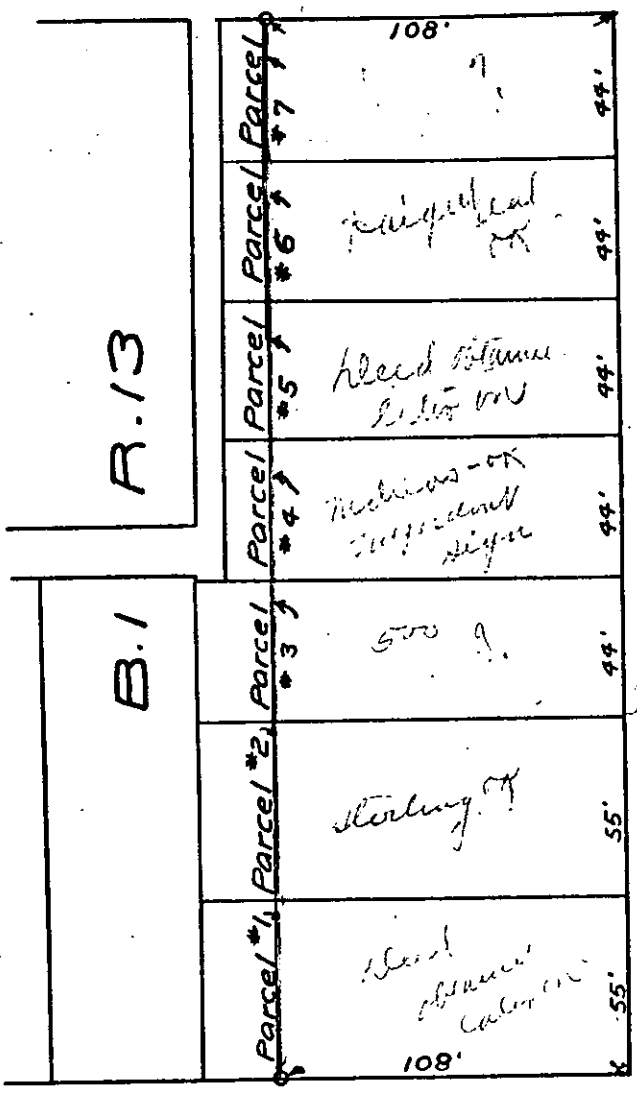 R.13
B.1
Parcel #7
108'
44'
Parcel #6
OK
44'
Parcel #5
Deed
44'
Parcel #4
OK
sign
44'
Parcel #3
500 ?
44'
Parcel #2,
Sterling OK
55'
Parcel #1,
Deed
55'
108'